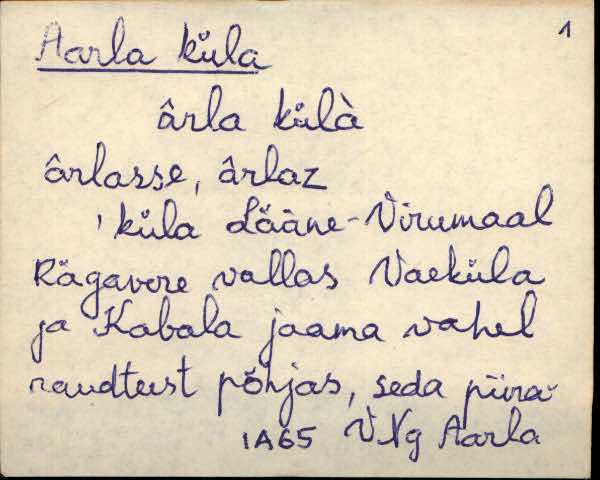 1
Aarla küla
ârla külà
ârlasse, ârlaz
'küla Lääne-Virumaal
Rägavere vallas Vaeküla
ja Kabala jaama vahel
raudteest põhjas, seda piira-
1965 VNg Aarla